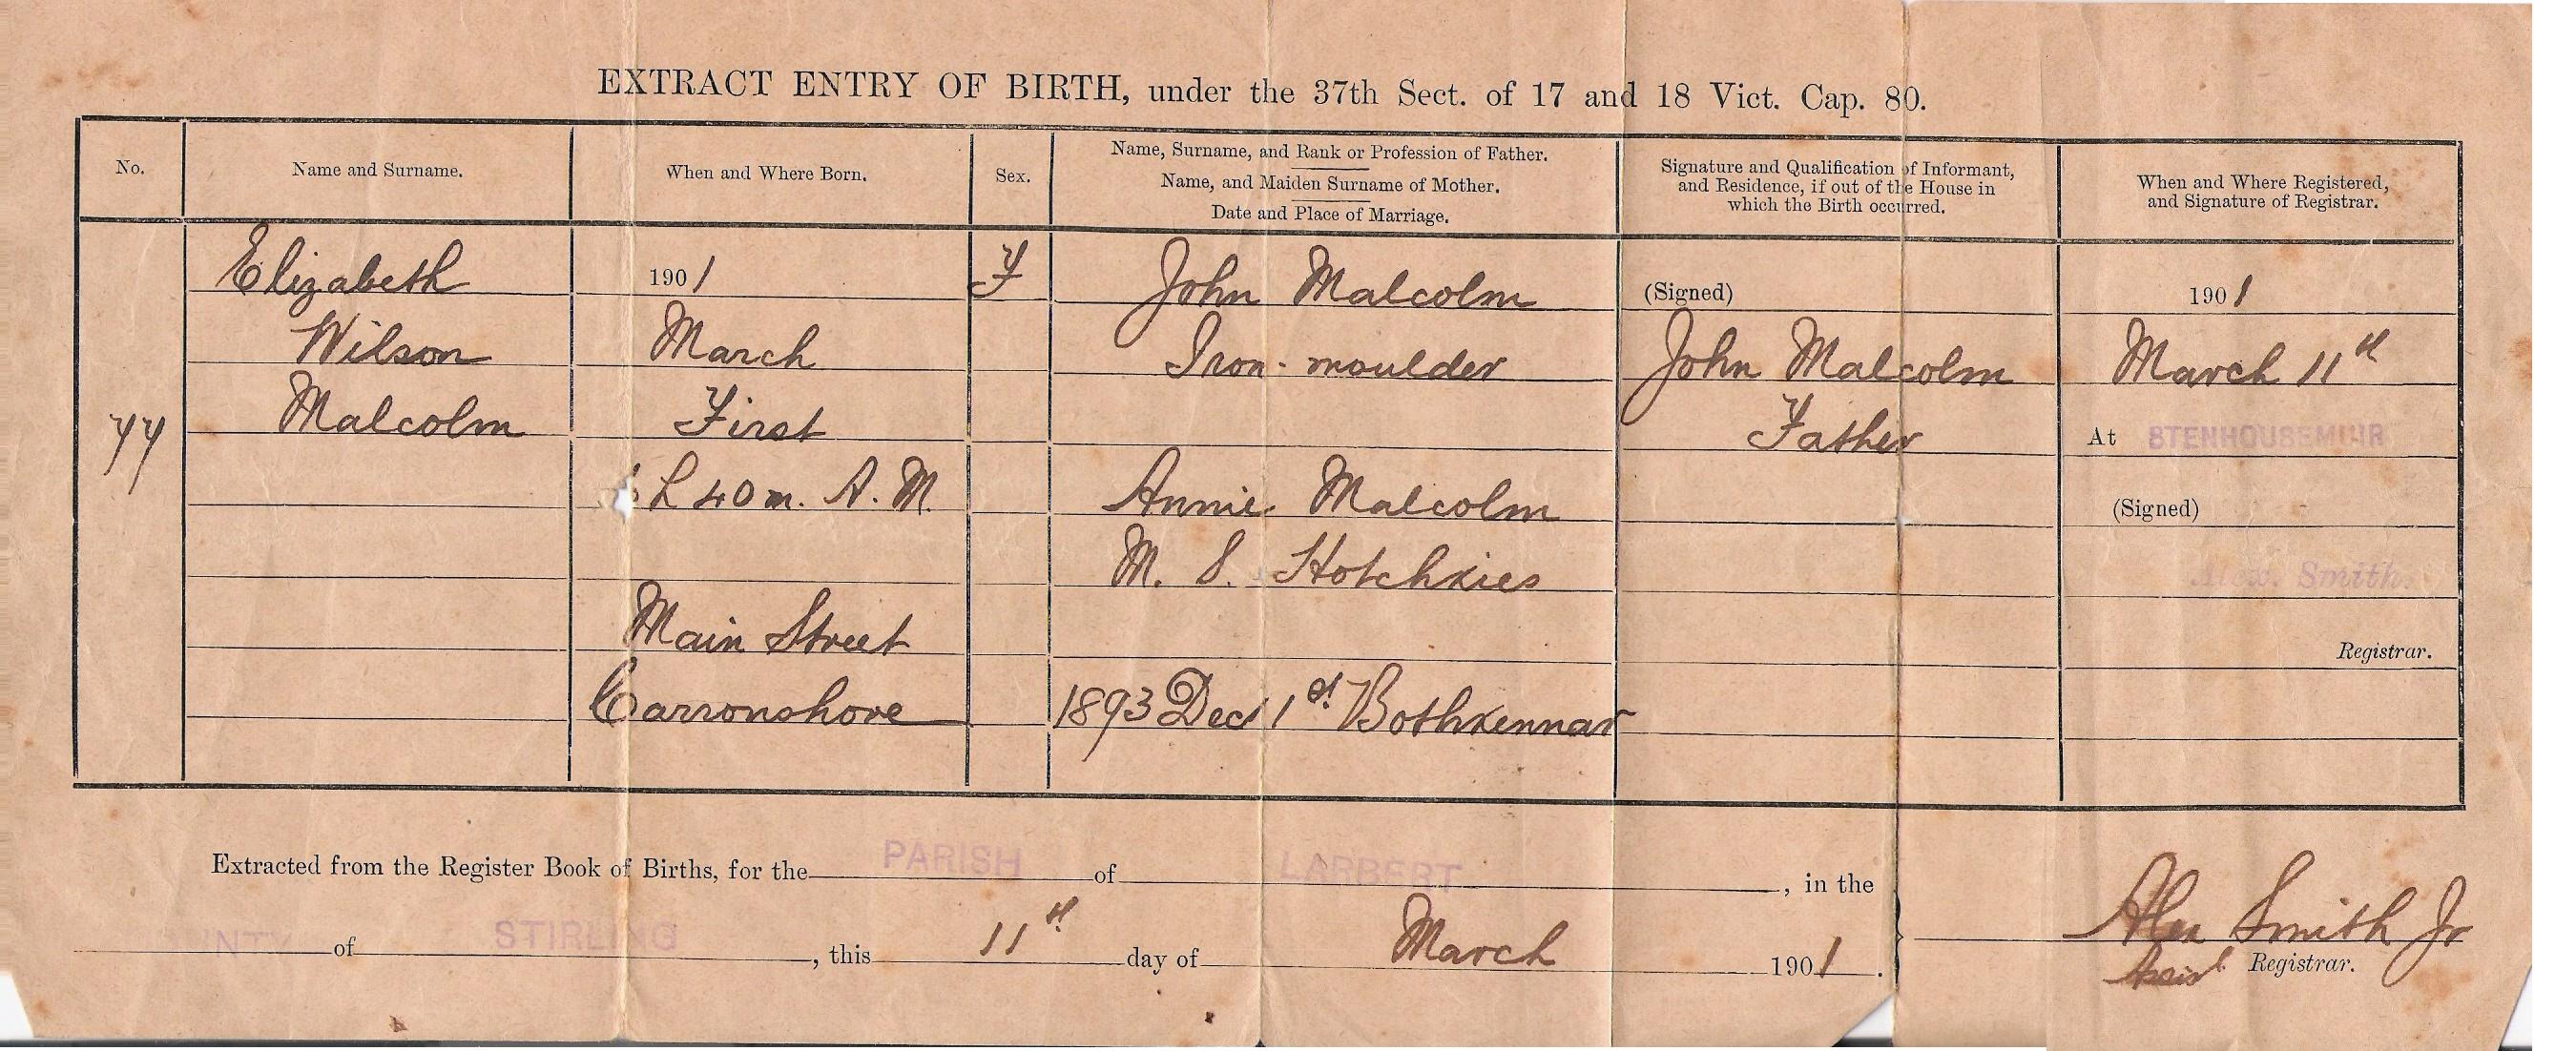 EXTRACT ENTRY OF BIRTH, under the 37th Sect. of 17 and 18 Vict. Cap. 80.
No.
Name and Surname.
When and Where Born.
Sex.
Name, Surname, and Rank or Profession of Father.
Name, and Maiden Surname of Mother.
Date and Place of Marriage.
Signature and Qualification of Informant,
and Residence, if out of the House in
which the Birth occurred.
When and Where Registered,
and Signature of Registrar.
77
Elizabeth
Wilson
Malcolm
1901
March
First
h 40 m. A. M.
Main Street
Carronshore
F
John Malcolm
Iron-moulder
Annie Malcolm
M. S. Hotchkies
1893 Dec 1st Bothkennar
(Signed)
John Malcolm
Father
1901
March 11th
At STENHOUSEMUIR
(Signed)
Alex. Smith.
Registrar.
Extracted from the Register Book of Births, for the PARISH of LARBERT, in the
NTY of STIRLING, this 11th day of March 1901.
Alex Smith Jr
Assist Registrar.